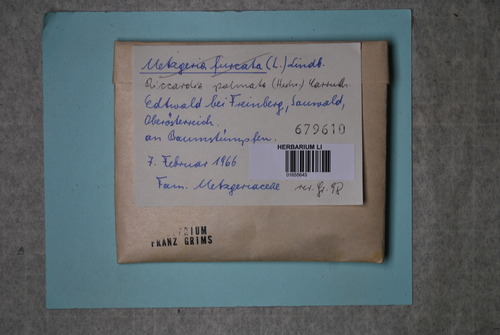 Metzgeria furcata (L.) Lindb.
Riccardia palmata (Hedw.) Carruth.
Edtwald bei Freinberg, Sauwald,
Oberösterreich.
an Baumstümpfen.
679610
HERBARIUM LI
7. Februar 1966
Fam. Metzgeriaceae
rev. Gr. 98
FRANZ GRIMS